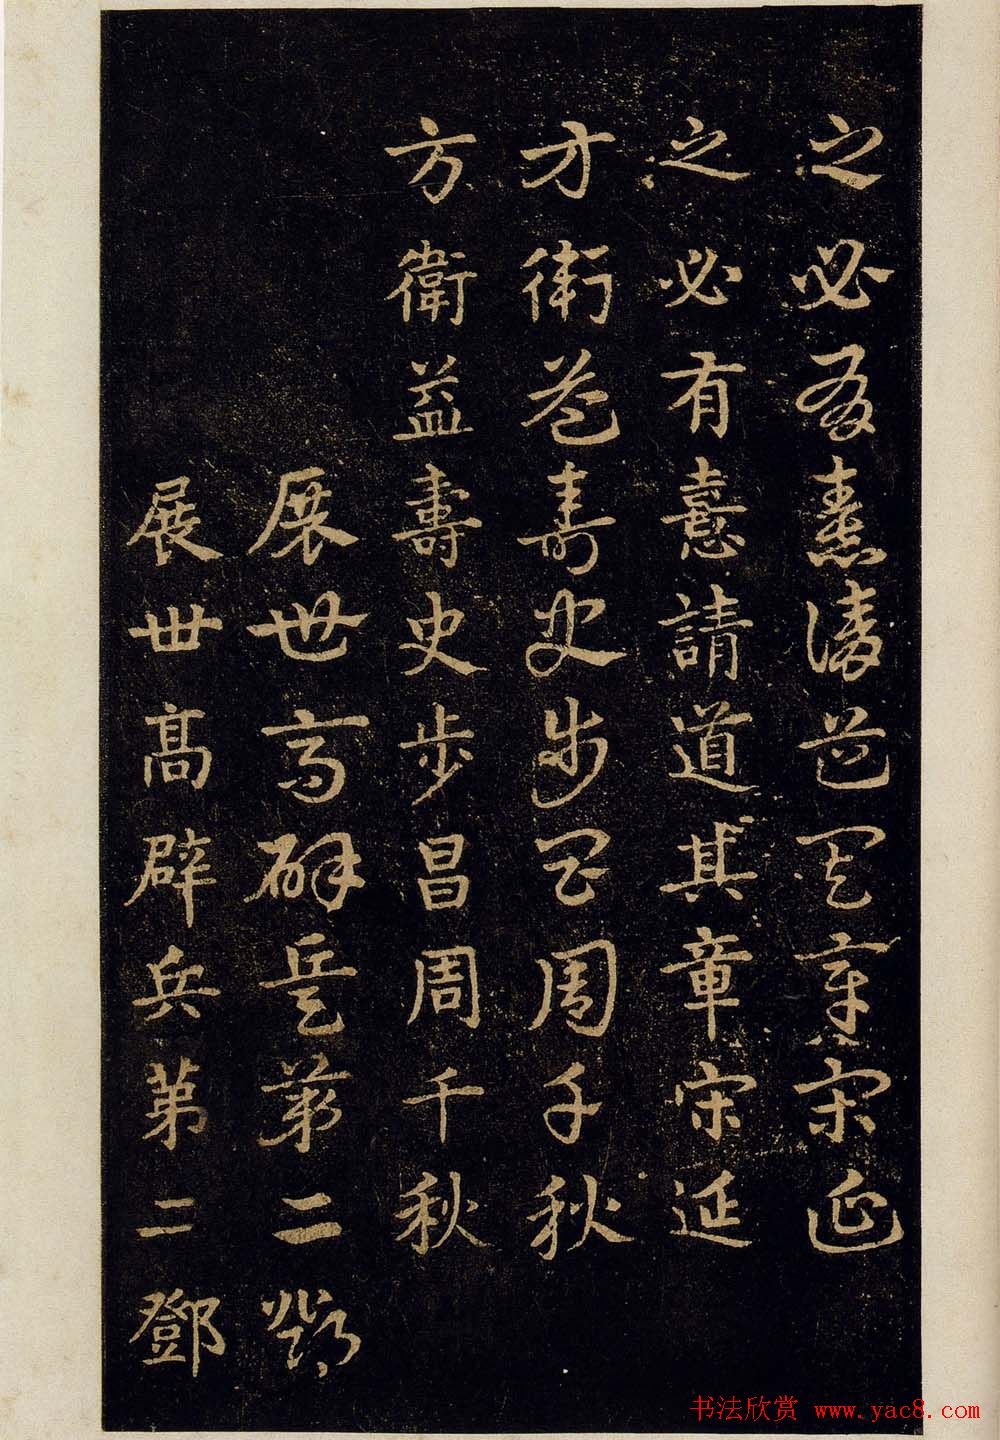 之必有憙請道其章宋延
之必有憙請道其章宋延
方衛益壽史步昌周千秋
方衛益壽史步昌周千秋
展世高辟兵第二鄧
展世高辟兵第二鄧
书法欣赏 www.yac8.com